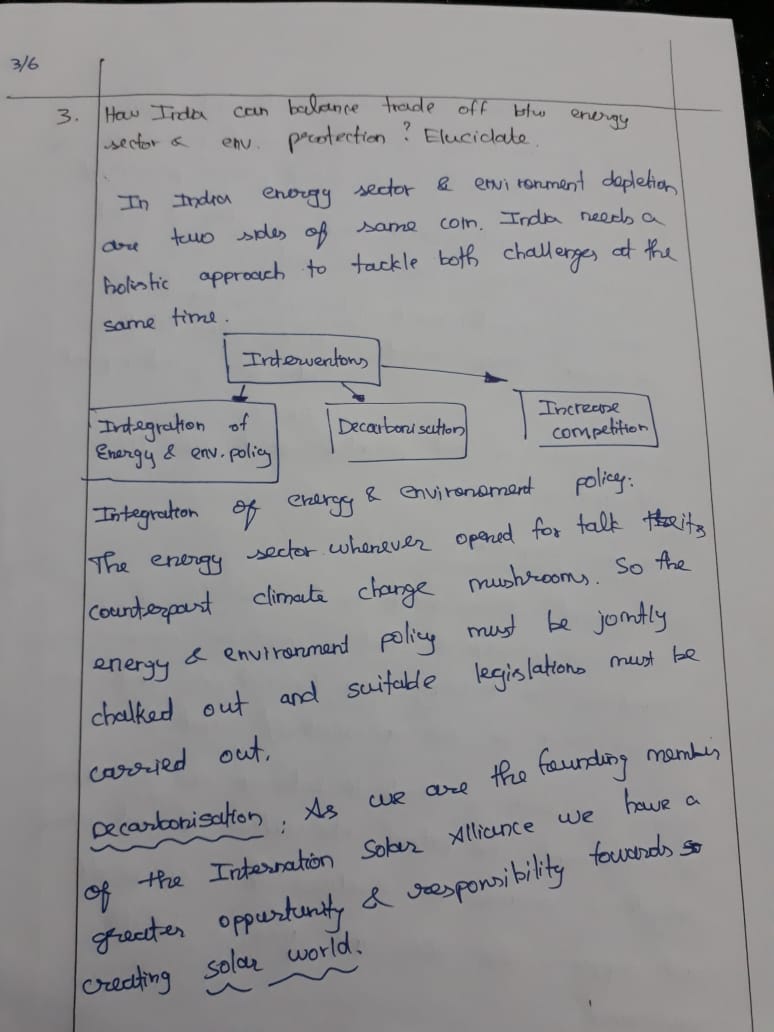 3/6
3. How India can balance trade off btw energy
sector & env. protection ? Elucidate.
In India energy sector & environment depletion
are two sides of same coin. India needs a
holistic approach to tackle both challenges at the
same time.
Interventions
Integration of
Energy & env. policy
Decarbonisation
Increase
competition
Integration of energy & environoment policy:
The energy sector whenever opened for talk its
counterpart climate change mushrooms. So the
energy & environment policy must be jointly
chalked out and suitable legislations must be
carried out.
Decarbonisation : As we are the founding member
of the Internation Solar Alliance we have a
greater oppurtunity & responsibility towards
creating solar world.